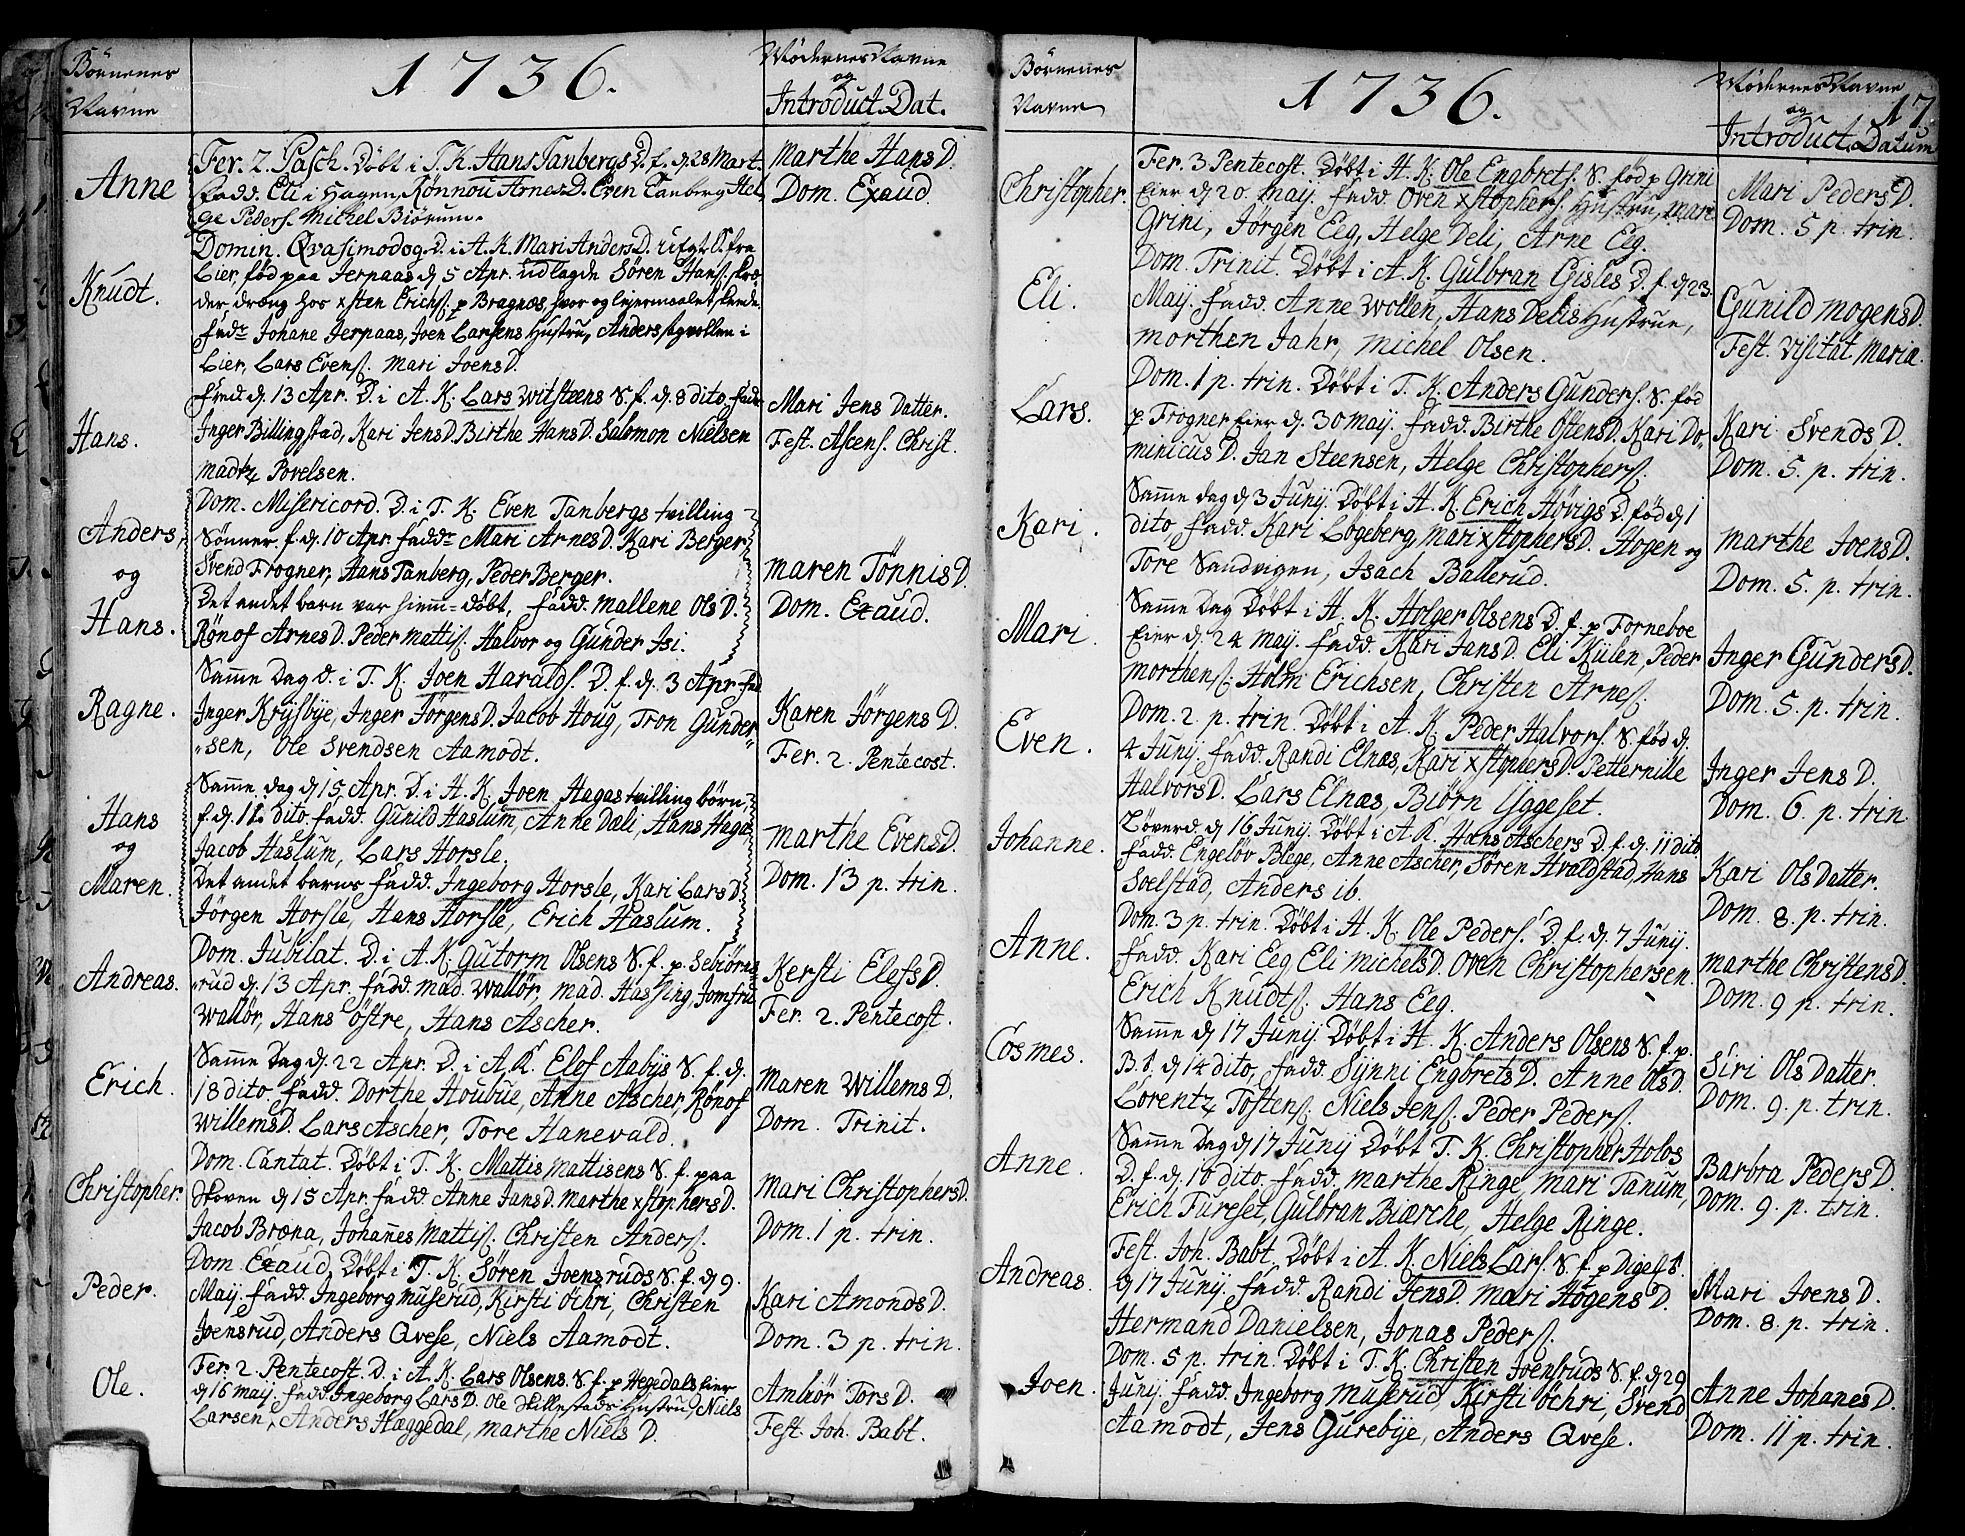 Börnenes
Navne
1736.
Mödernes Navne
og
Introduct. Dat.
Anne
Fer. 2. Pasch. Döbt i T. K. Hans Tanbergs D. f. d. 28 Mart.
Fadd. Eli i Hagen, Ronnou Arnes D. Even Tanberg Hel-
ge Peders. Michel Biörum.
Marthe Hans D.
Dom. Exaud.
Knudt.
Domin. Qvasimodog. D. i A. K. Mari Anders D. uegt. S. fra
Lier, föd paa Jerpaas d 5 Apr. udlagde Sören Hans. skræ-
der dræng hos xsten Erichs. p Bragnæs, hvor og lejermaalet skede.
Fadr. Johane Jerpaas, Joen Larsens Hustru, Anders Agvollen i
Lier, Lars Evens. Mari Joens D.
Hans.
Fred. d. 13 Apr. D. i A. K. Lars Witsteens S. f. d. 8 dito, Fadr
Inger Billingstad, Kari Jens D. Birthe Hans D. Salomon Nielsen
Madtz Povelsen.
Mari Jens Datter.
Fest. Ascens. Christ.
Anders,
og
Hans.
Dom. Misericord. D. i T. K. Even Tanbergs tvilling
Sönner. f. d. 10 Apr. Faddr Mari Arnes D. Kari Berger,
Svend Frogner, Hans Tanberg, Peder Berger.
Det andet barn var hiemm-döbt, Fadd. Mallene Ols D.
Rönof Arnes D. Peder Mattis. Halvor og Gunder Isi.
Maren Tönnis D.
Dom. Exaud.
Ragne.
Samme Dag D. i T. K. Joen Haralds. D. f. d. 3 Apr. Fad
Inger Krÿsbye, Inger Jörgens D. Jacob Houg, Tron Gunder
sen, Ole Svendsen Aamodt.
Karen Jörgens D.
Fer. 2. Pentecost.
Hans
og
Maren.
Samme dag d 15 Apr. D. i H. K. Joen Hagas tvilling börn,
f. d. 11 dito. Fadd. Gunild Haslum, Anne Dali, Hans Haga
Jacob Haslum, Lars Horsle.
Det andet barns Fadd. Ingeborg Horsle, Kari Lars D.
Jörgen Horsle, Hans Horsle, Erich Haslum.
Marthe Evens D.
Dom. 13 p. trin.
Andreas.
Dom. Jubilat. D. i A. K. Gutorm Olsens S. f. p. Sebiörns
rud d. 13 Apr. Fadd. Mad. Wallör, Mad. Hassing, Jomfru
Wallör, Hans Östre, Hans Ascher.
Kersti Elefs D.
Fer. 2. Pentecost.
Erich.
Samme Dag d. 22 Apr. D. i A. K. Elef Aabÿs S. f. d.
18 dito. Fadd. Dorthe Houbue, Anne Ascher, Rönof
Willems D. Lars Ascher, Tore Hanevald.
Maren Willems D.
Dom. Trinit.
Christopher.
Dom. Cantat. Döbt i T. K. Mattis Mattisens S. f. paa
Skoven d 15 Apr. Fadd. Anne Jans D. Marthe xstophers D.
Jacob Bræna, Johannes Mattis. Christen Anders.
Mari Christophers D.
Dom. 1 p. trin.
Peder.
Dom. Exaud. Döbt i T. K. Sören Joensruds S. f. d. 9.
Maÿ. Fadd. Ingeborg Muserud, Kirsti Öchri, Christen
Joensrud, Anders Qvese, Niels Aamodt.
Kari Amonds D.
Dom. 3 p. trin.
Ole.
Fer. 2. Pentecost. D. i A. K. Lars Olsens S. f. p Hegedals Eier
d 16 Maÿ. Fadd. Ingeborg Lars D. Ole Skillestads Hustru, Niels
Larsen, Anders Hæggedal, Marthe Niels D.
Ambör Tors D.
Fest. Joh. Babt.
Börnenes
Navne
1736.
Mödernes Navne
17.
og
Introduct. Datum
Christopher.
Fer. 3 Pentecost. Döbt i H. K. Ole Engbrets. S. föd p Grini
Eier d 20. Maÿ. Fadd. Oven xstophers. Hustru, Mari
Grini, Jörgen Eeg, Helge Deli, Arne Eeg.
Mari Peders D.
Dom. 5 p. trin.
Eli.
Dom. Trinit. Döbt i A. K. Gulbran Gisles D. f. d. 23.
Maÿ. Fadd. Anne Wollen, Hans Delis Hustrue,
Morthen Jahr, Michel Olsen.
Gunild Mogens D.
Fest. Visitat Mariæ.
Lars.
Dom. 1 p. trin. Döbt i T. K. Anders Gunders. S. föd
p Frogner Eier d. 30 Maÿ. Fadd. Birthe Ostens D. Kari Do-
minicus D. Jan Steensen, Helge Christophers.
Kari Svends D.
Dom. 5. p. trin.
Kari.
Samme dag d 3 Junÿ. Döbt i H. K. Erich Hövigs D. föd d 1
dito, Fadd. Kari Logeberg, Mari xstophers D. Hogen og
Tore Sandvigen, Isach Ballerud.
Marthe Joens D.
Dom. 5. p. trin.
Mari.
Samme Dag Döbt i H. K. Holger Olsens D. f. p Forneboe
Eier d. 24 Maÿ. Fadd. Kari Jans D. Eli Kiilen, Peder
Morthens. Holm Erichsen, Christen Arnes.
Inger Gunders D.
Dom. 5. p. trin.
Even.
Dom. 2. p. trin. Döbt i A. K. Peder Halvors. S. föd d.
4 Junÿ. Fadd. Randi Elnæs, Kari xstophers D. Petternille
Halvors D. Lars Elnæs, Biörn Yggeset.
Inger Jens D.
Dom. 6. p. trin
Johanne.
Löverd. d 16 Junÿ. Döbt i A. K. Hans Aschers D. f. d. 11 dito.
Fadd. Engelöv Blege, Anne Ascher, Sören Hvaldstad, Hans
Soelstad, Anders ib.
Kari Ols Datter.
Dom. 8. p. trin.
Anne.
Dom. 3 p. trin. Döbt i H. K. Ole Peders. D. f. d. 7 Junÿ.
Fadd. Kari Eeg Eli Michels D. Oven Christophersen.
Erich Knudts. Hans Eeg.
Marthe Christens D.
Dom. 9 p. trin.
Cosmes.
Samme d 17 Junÿ. Döbt i H. K. Anders Olsens S. f. p.
B. S. d 14 dito, Fadd. Synni Engbrets D. Anne Ols D.
Lorentz Tostens. Niels Jens. Peder Peders.
Siri Ols Datter.
Dom. 9. p. trin.
Anne.
Samme Dag d 17 Junÿ Döbt T. K. Christopher Holos
D. f. d. 10 dito. Fadd. Marthe Ringe, Mari Tanum,
Erich Fureset, Gulbran Biærche, Helge Ringe.
Barbra Peders D.
Dom. 9. p. trin.
Andreas.
Fest. Joh. Babt. Döbt i A. K. Niels Lars. S. f. p Digest.
d 17 Junÿ. Fadd. Randi Jens D. Mari Hogens D.
Hermand Danielsen, Jonas Peders.
Mari Joens D.
Dom. 8. p. trin.
Joen.
Dom. 5 p. trin. Döbt i T. K. Christen Joensruds S. f. d 29
Junÿ. Fadd. Ingeborg Muserud, Kirsti Öchri, Svend
Aamodt, Jens Gurebÿe, Anders Qvese.
Anne Johanes D.
Dom. 11 p. trin.